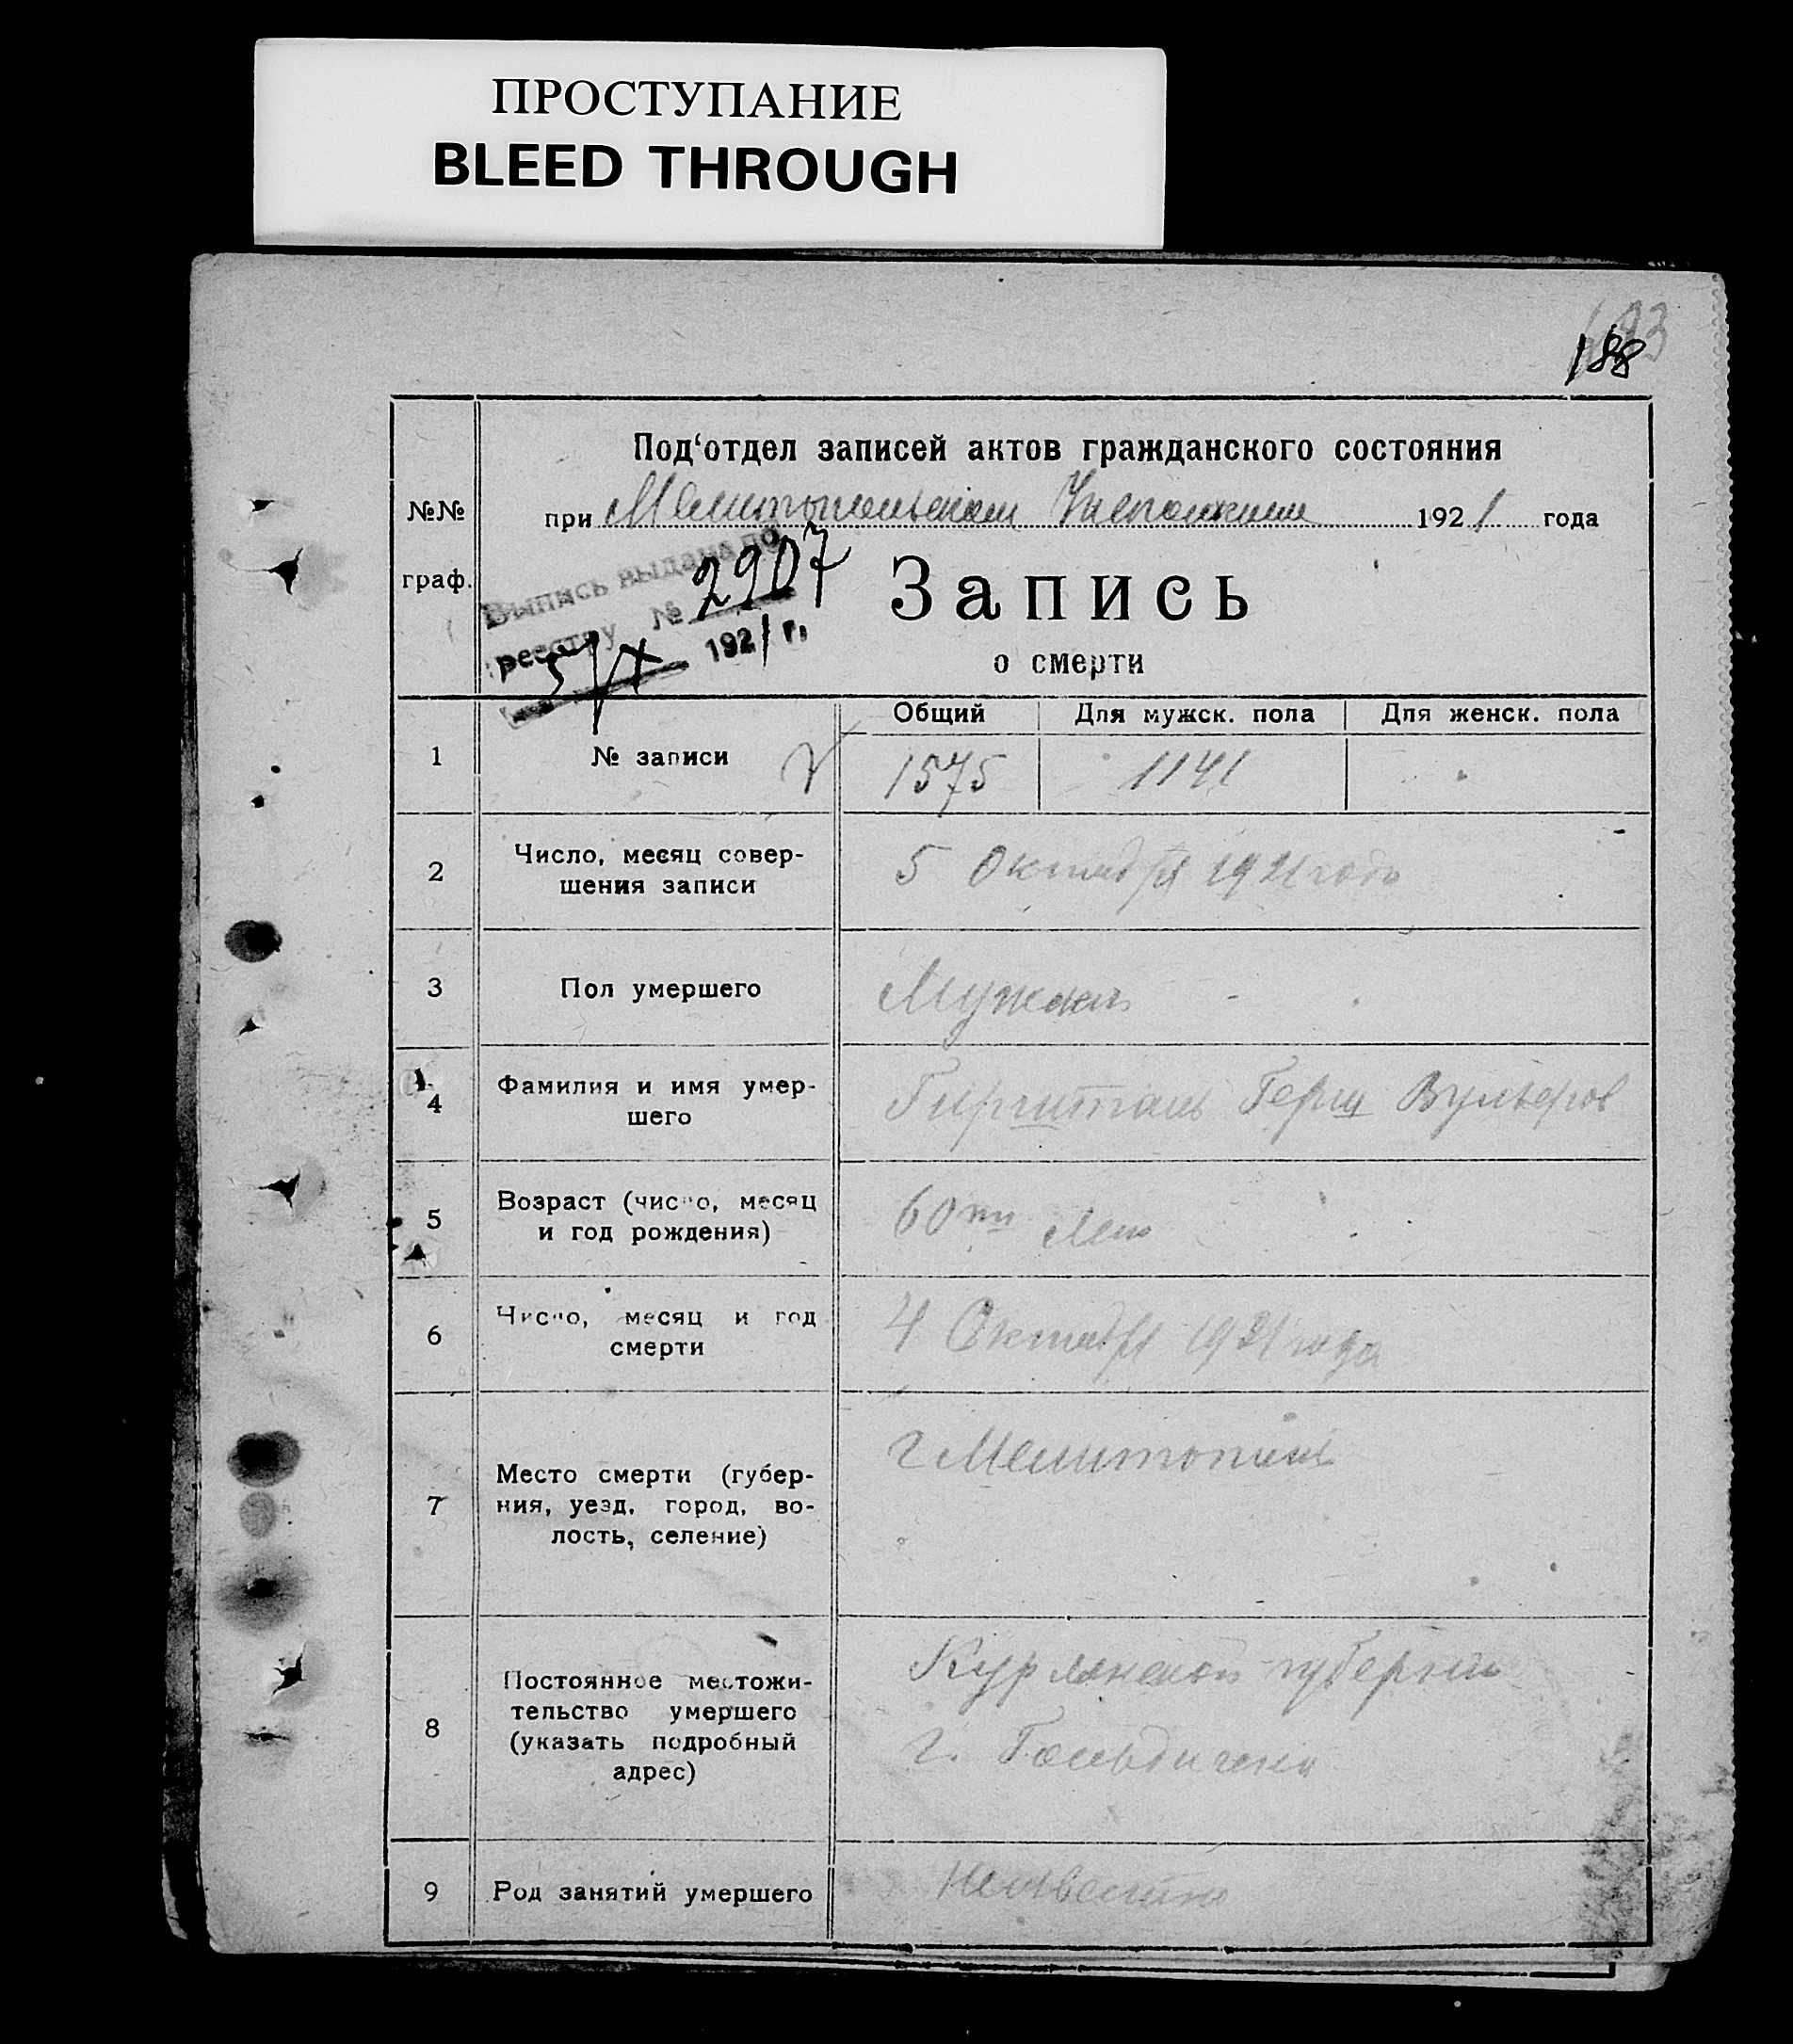 ПРОСТУПАНИЕ
BLEED THROUGH
188
Под‘отдел записей актов гражданского состояния
№№ граф.
при Мелитопольском Уисполкоме 1921 года
Выпись выдана по
реестру № 2907
5/X 1921 г.
Запись
о смерти
Общий Для мужск. пола Для женск. пола
1 № записи 1575 1141
2 Число, месяц совер-
шения записи 5 Октября 1921 года
3 Пол умершего Мужской
4 Фамилия и имя умер-
шего Гиршталь Герш Вульфов
5 Возраст (число, месяц
и год рождения) 60ти Лет
6 Число, месяц и год
смерти 4 Октября 1921 года
г Мелитополь
7 Место смерти (губер-
ния, уезд, город, во-
лость, селение)
Курлянской губернии
8 Постоянное местожи-
тельство умершего
(указать подробный
адрес)
г.
9 Род занятий умершего Неизвестно